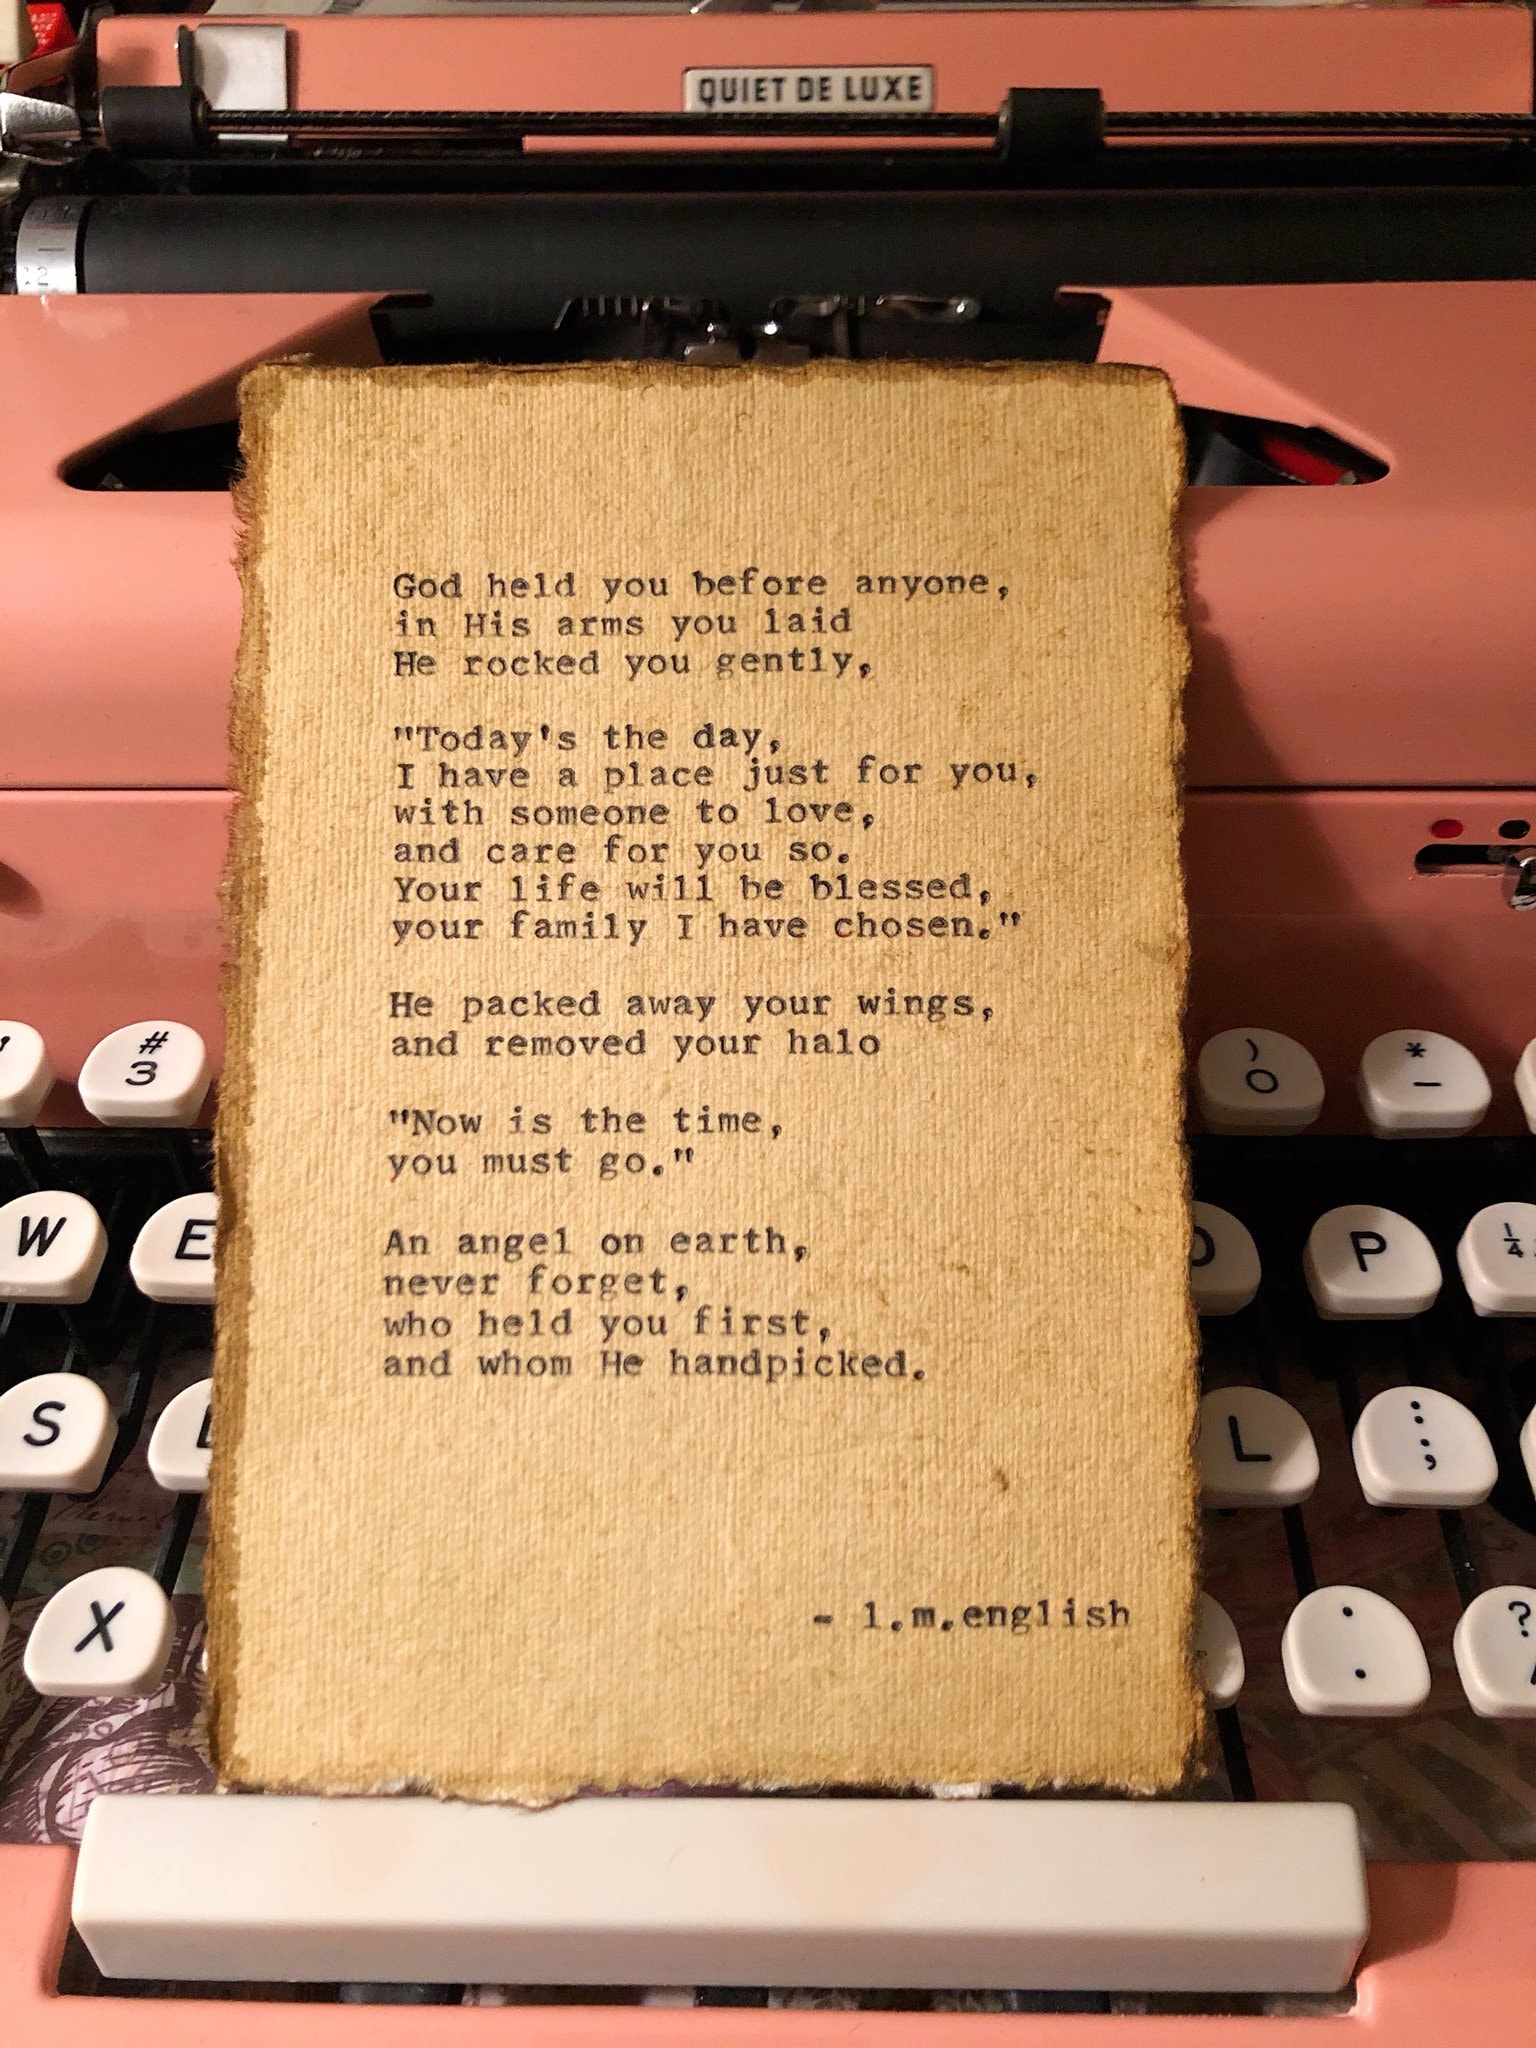 QUIET DE LUXE
God held you before anyone,
in His arms you laid
He rocked you gently,
"Today's the day,
I have a place just for you,
with someone to love,
and care for you so.
Your life will be blessed,
your family I have chosen."
He packed away your wings,
and removed your halo
"Now is the time,
you must go."
An angel on earth,
never forget,
who held you first,
and whom He handpicked.
- l.m.english
# ) *
3 0 -
W E P ¼
S L : ;
X . ?
.